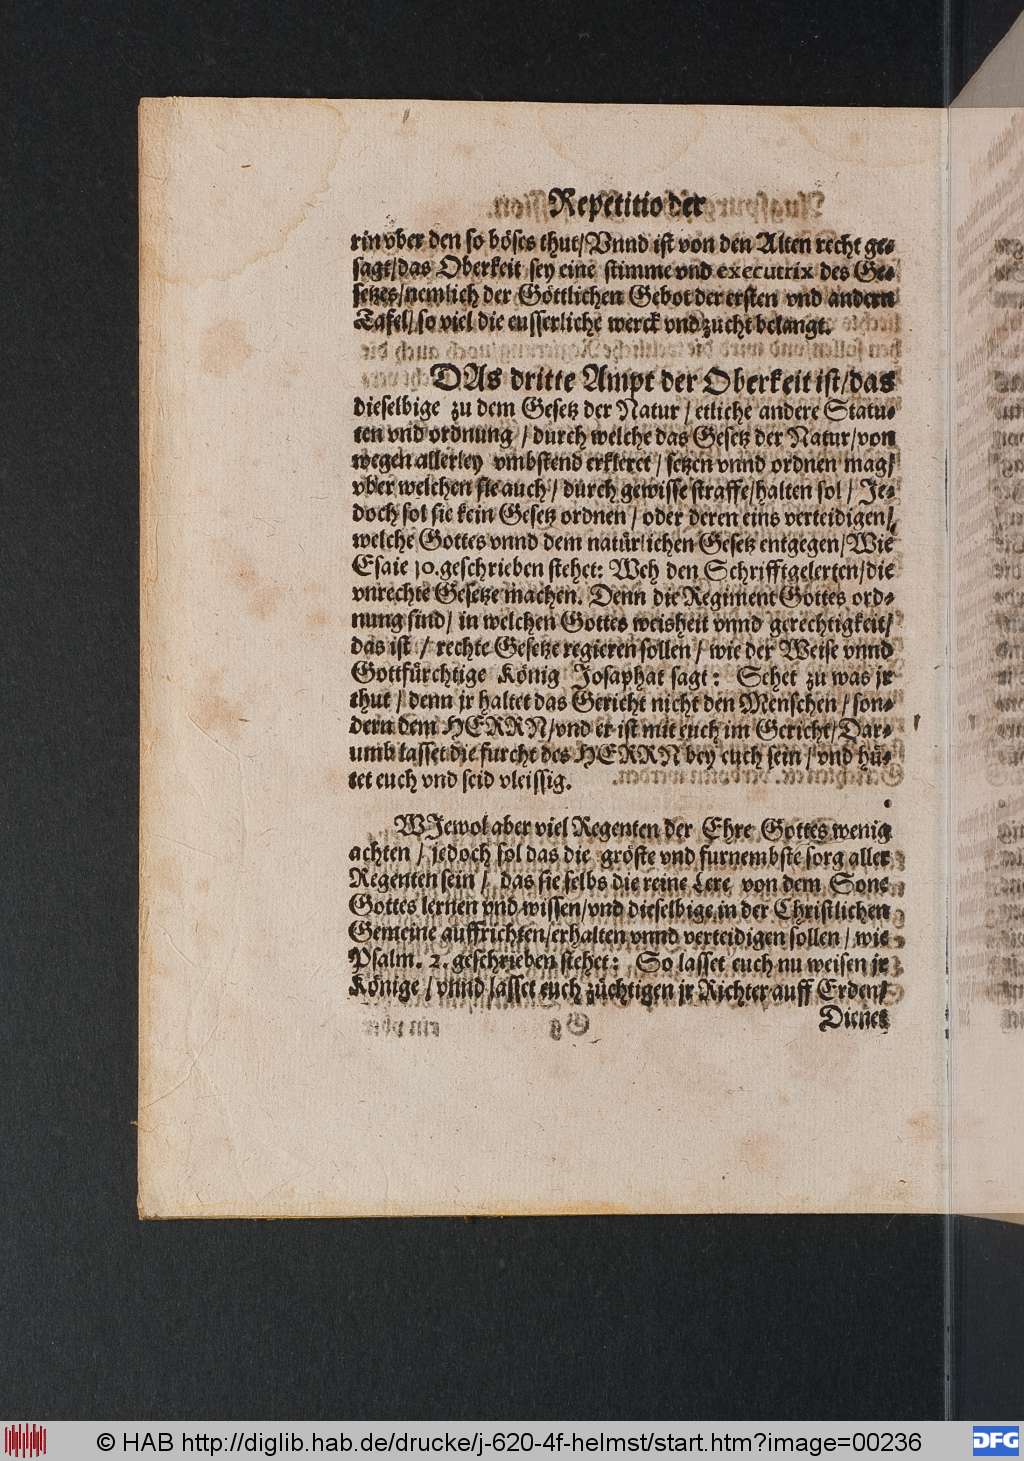 Repetitio der
rin vber den so böses thut/Vnnd ist von den Alten recht ge-
sagt/das Oberkeit sey eine stimme vnd executrix des Ge-
setzes/nemlich der Göttlichen Gebot der ersten vnd andern
Tafel/so viel die eusserliche werck vnd zucht belangt.
DAs dritte Ampt der Oberkeit ist/das
dieselbige zu dem Gesetz der Natur/etliche andere Statu-
ten vnd ordnung/durch welche das Gesetz der Natur/von
wegen allerley vmbstend erkleret/setzen vnnd ordnen mag/
vber welchen sie auch/durch gewisse straffe/halten sol/Je-
doch sol sie kein Gesetz ordnen/oder deren eins verteidigen/
welche Gottes vnnd dem natürlichen Gesetz entgegen/Wie
Esaie 10.geschrieben stehet: Weh den Schrifftgelerten/die
vnrechte Gesetze machen. Denn die Regiment Gottes ord-
nung sind/in welchen Gottes weisheit vnnd gerechtigkeit/
das ist/rechte Gesetze regieren sollen/wie der Weise vnnd
Gottfürchtige König Josaphat sagt: Sehet zu was jr
thut/denn jr haltet das Gericht nicht den Menschen/son-
dern dem HERRN/vnd er ist mit euch im Gericht/Dar-
umb lasset die furcht des HERRN bey euch sein/vnd hü-
tet euch vnd seid vleissig.
WJewol aber viel Regenten der Ehre Gottes wenig
achten/jedoch sol das die gröste vnd furnembste sorg aller
Regenten sein/das sie selbs die reine Lere von dem Sone
Gottes lernen vnd wissen/vnd dieselbige in der Christlichen
Gemeine auffrichten/erhalten vnnd verteidigen sollen/wie
Psalm. 2. geschrieben stehet: So lasset euch nu weisen jr
Könige/vnnd lasset euch züchtigen jr Richter auff Erden/
Dienet
© HAB http://diglib.hab.de/drucke/j-620-4f-helmst/start.htm?image=00236
DFG